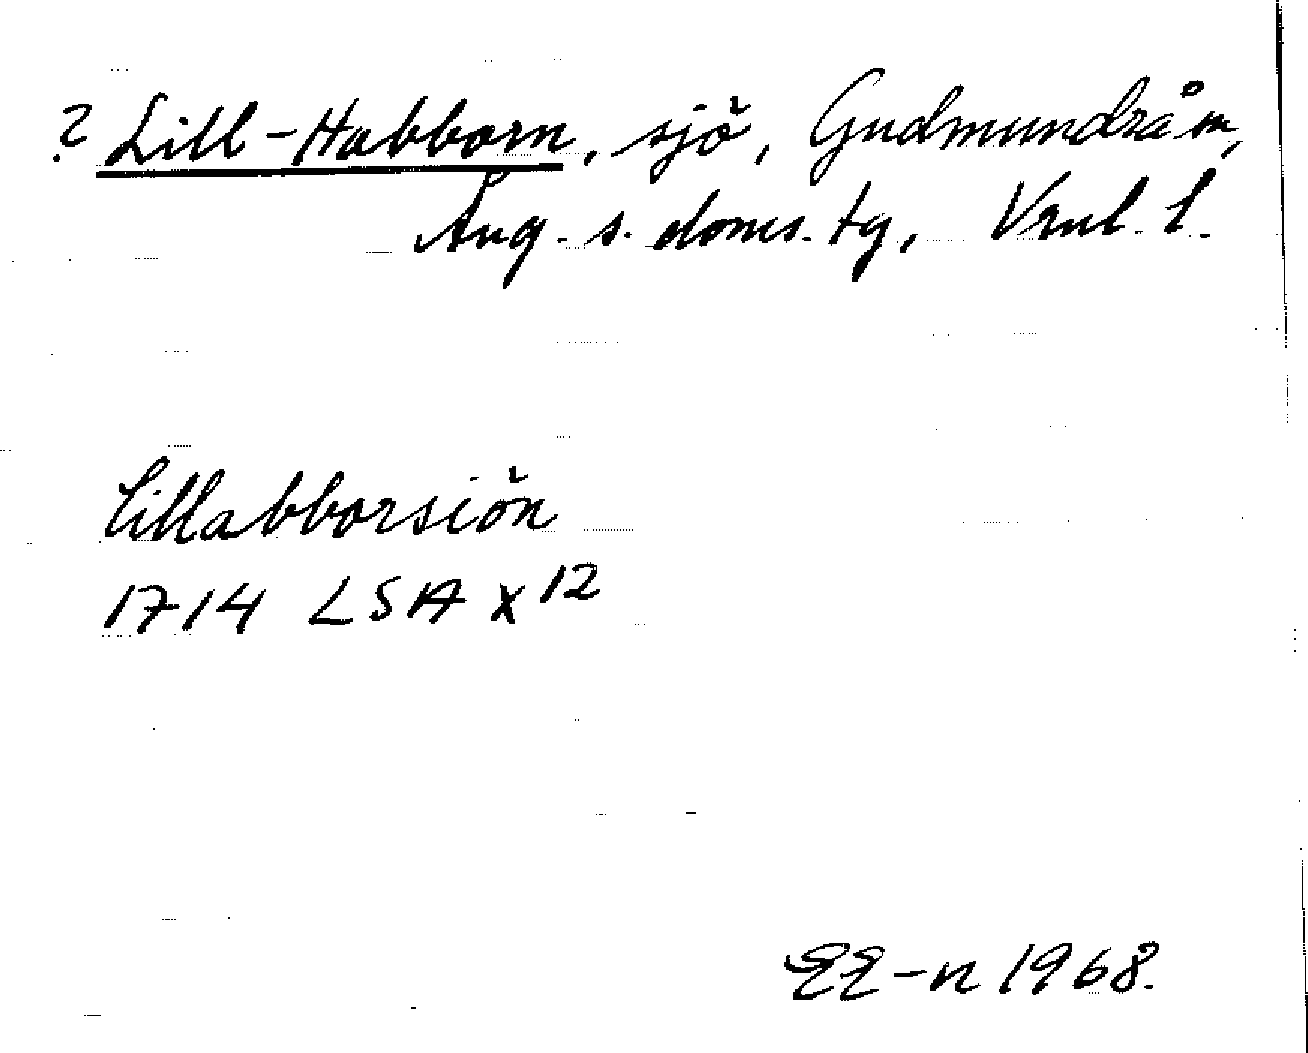 ? Lill-Habborn, sjö, Gudmundrå sn,
Ång. s. doms. tg, Vrnl. l.
Lillabborsiön
1714 LSA X 12
EE-n 1968.